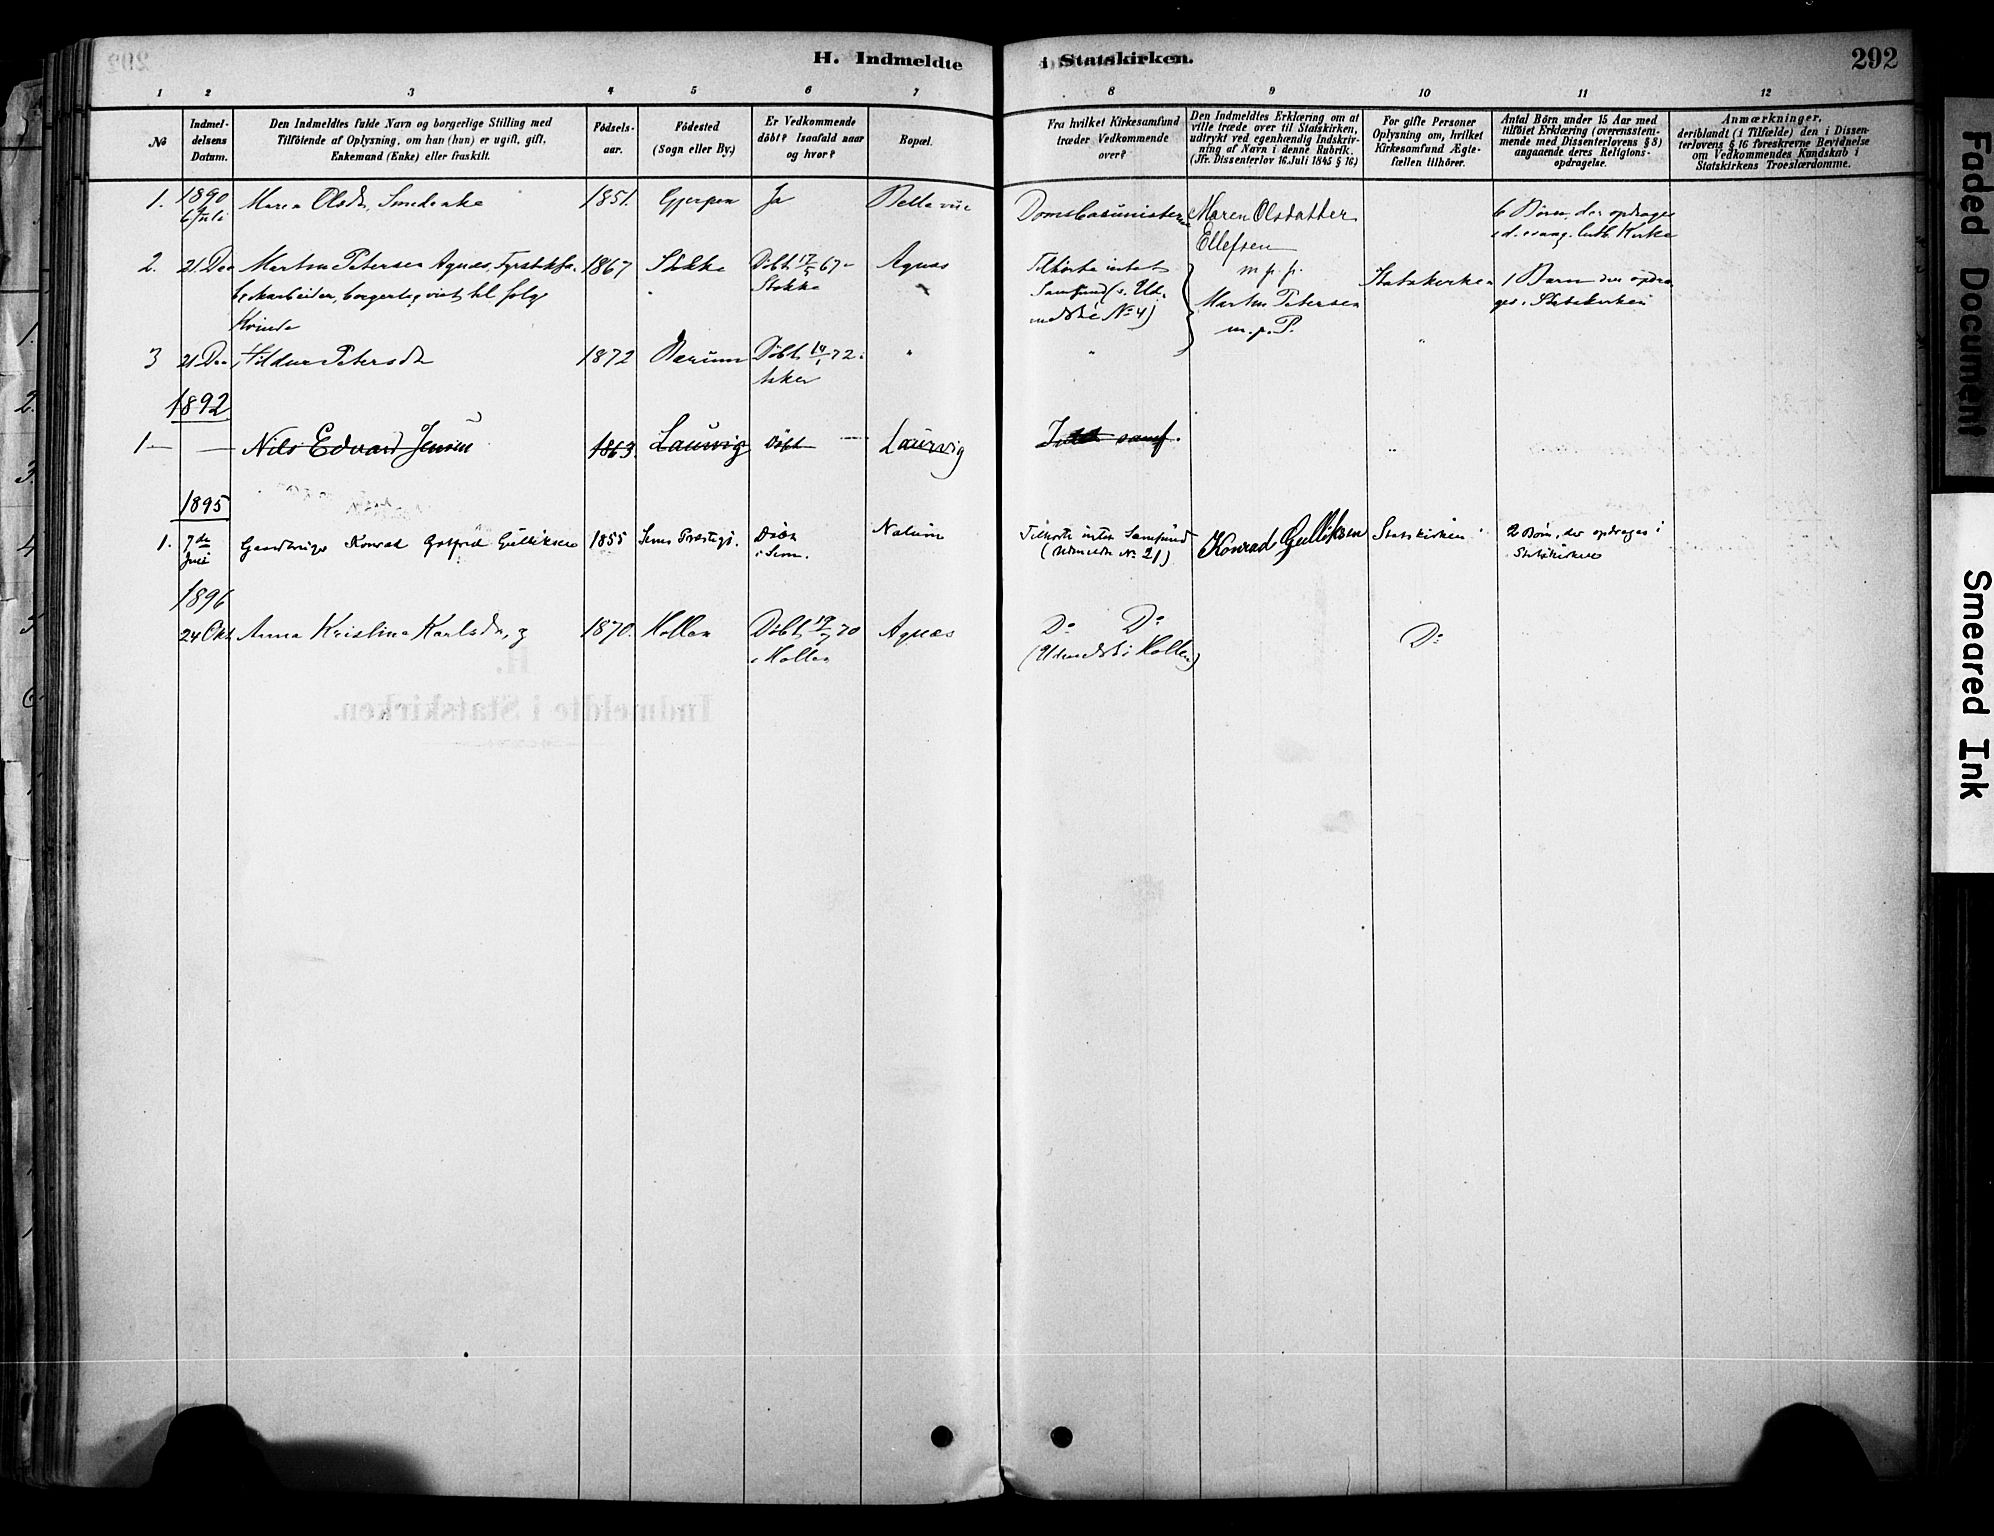 H. Indmeldte i Statskirken.
292
1 2 3 4 5 6 7 8 9 10 11 12
No
Indmeldelsens Datum.
Den Indmeldtes fulde Navn og borgerlige Stilling med
Tilföiende af Oplysning, om han (hun) er ugift, gift,
Enkemand (Enke) eller fraskilt.
Födselsaar.
Födested
(Sogn eller By.)
Er Vedkommende
döbt? Isaafald naar
og hvor?
Bopæl.
Fra hvilket Kirkesamfund
træder Vedkommende
over?
Den Indmeldtes Erklæring om at
ville træde over til Statskirken,
udtrykt ved egenhændig Indskriv-
ning af Navn i denne Rubrik.
(Jfr. Dissenterlov 16 Juli 1845 § 16.)
For gifte Personer
Oplysning om, hvilket
Kirkesamfund Ægte-
fællen tilhörer.
Antal Börn under 15 Aar med
tilföiet Erklæring (overensstem-
mende med Dissenterlovens § 8)
angaaende deres Religions-
opdragelse.
Anmærkninger,
deriblandt (i Tilfælde) den i Dissen-
terlovens § 16 foreskrevne Bevidnelse
om Vedkommendes Kundskab i
Statskirkens Troeslærdomme.
1890
1. 6 Juli Maren Olsdr, Smedenke 1851. Gjerpen Ja Bellevue Maren Olsdatter
Ellefsen
6 Børn, der opdrages
i d. evang. luth. Kirke
2. 21 Dec Martin Petersen Agnæs, Fyrstikfa-
brikarbeider, borgerlig viet til følg.
Kvinde
1867 Stokke Døbt 17/5 67
Stokke
Agnæs
Tilhørte intet
Samfund (s. Ud-
meldte No 4)
m. p. p.
Martin Petersen
m. p. P.
Statskirken
1 Barn der opdra-
ges i Statskirken
3 21 Dec Hildur Petersdr 1872 Bærum Døbt 14/1 72
Asker
" "
1892
1 — — Nils Edvard Jensen 1863. Laurvig Døbt — Laurvig Intet samf.
1895
1. 7de Juni Gaardbruger Konrad Gotfred Gulliksen 1855 Sems Præstegj. Døbt
i Sem.
Nalum
Tilhørte intet Samfund
(Udmeldte No 21)
Konrad Gulliksen
Statskirken
2 Børn, der opdrages i
Statskirken
1896
24 Okt Anna Kristine Karlsdr, g 1870. Hollen Døbt 17/7 70
i Hollen
Agnæs
Do Do
(Udmeldt i Hollen)
Do
H.
Indmeldte i Statskirken.
Faded Document
Smeared Ink